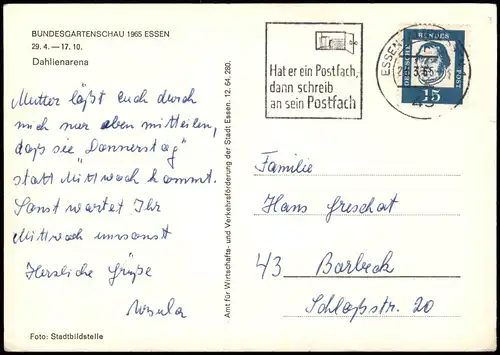 BUNDESGARTENSCHAU 1965 ESSEN
29. 4. — 17. 10.
Dahlienarena
Mutter läßt Euch durch
mich nur eben mitteilen,
daß sie "Donnerstag"
statt Mittwoch kommt.
Sonst wartet Ihr
Mittwoch umsonst
Herzliche Grüße
Ursula
Foto: Stadtbildstelle
Amt für Wirtschafts- und Verkehrsförderung der Stadt Essen. 12. 64. 280.
Hat er ein Postfach,
dann schreib
an sein Postfach
ESSEN
DEUTSCHE BUNDESPOST
15
Familie
Hans Greschat
43 Borbeck
Schloßstr. 20